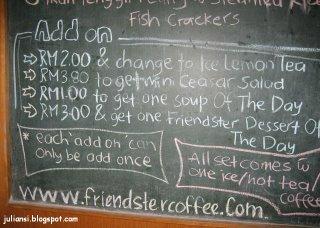 Fish Crackers
Add on
⇨ RM2.00 & change to Ice Lemon Tea
⇨ RM3.80 to get mini Ceasar Salad
⇨ RM1.00 to get one soup Of The Day
⇨ RM3.00 & get one Friendster Dessert Of
The Day
* each add on can
only be add once
All set comes w
one ice/hot tea/
coffee
www.friendstercoffee.com.
juliansi.blogspot.com